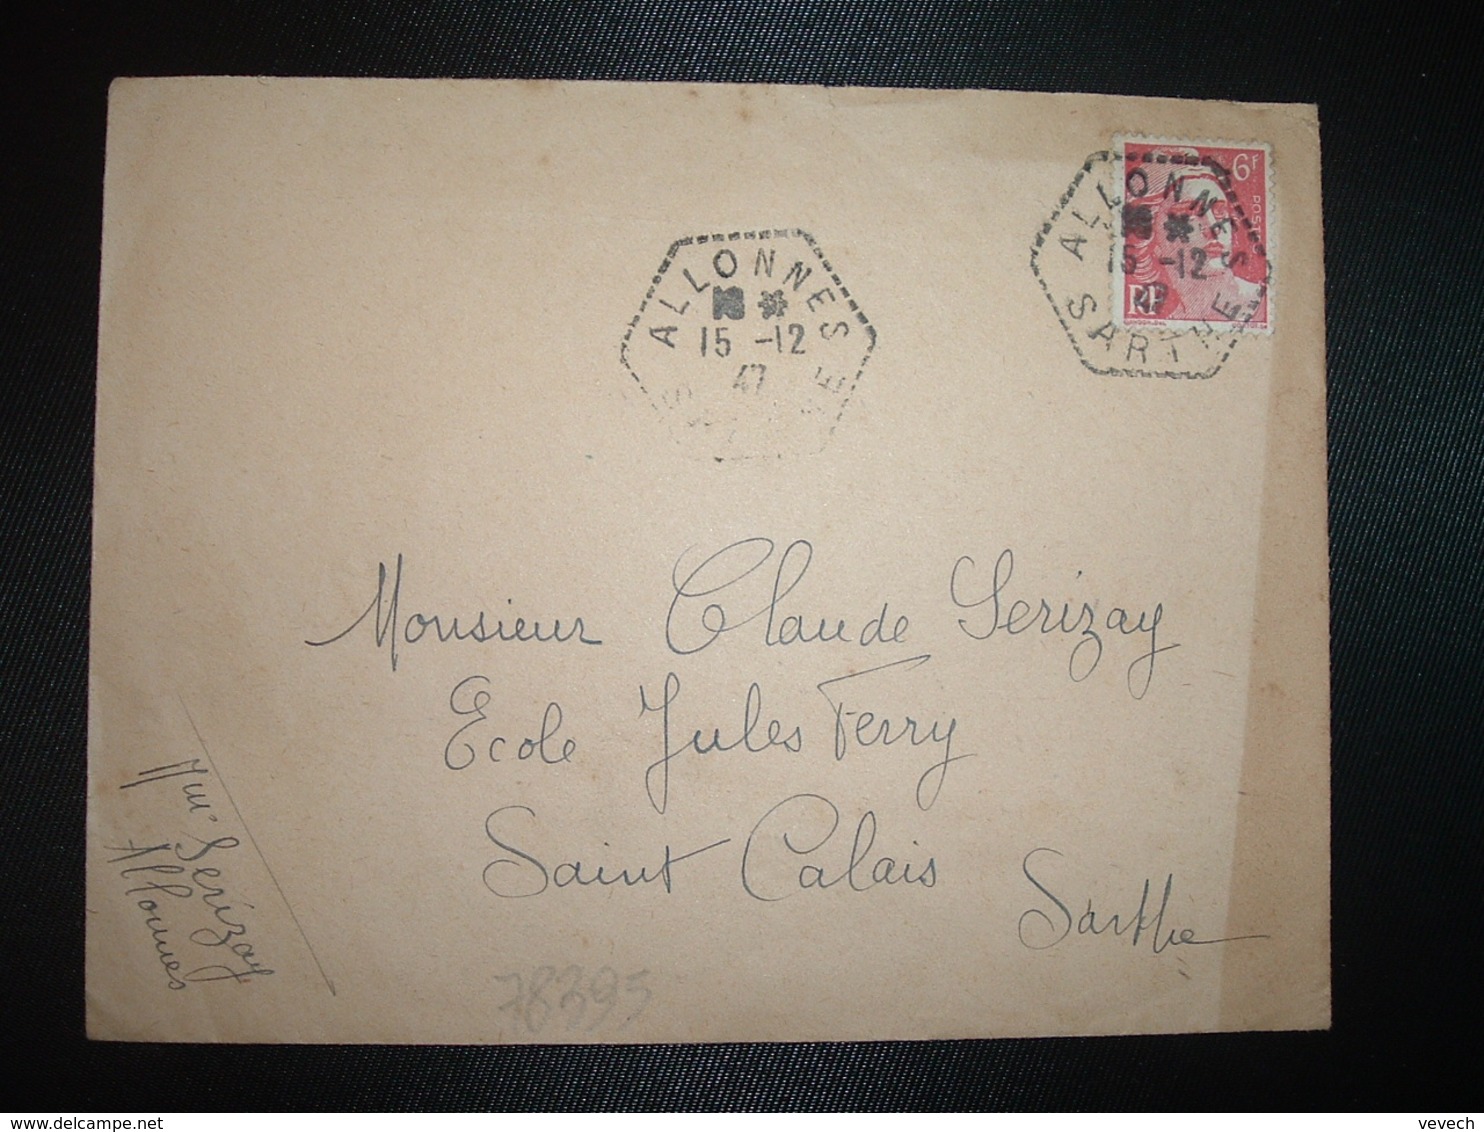 ALLONNES
15 -12
47
6F
POSTES
ALLONNES
15 -12
47
RF
SARTHE
Monsieur Claude Serizay
Ecole Jules Ferry
Saint Calais
Sarthe
Mme Serizay
Allonnes
78395
delcampe.net
vevech